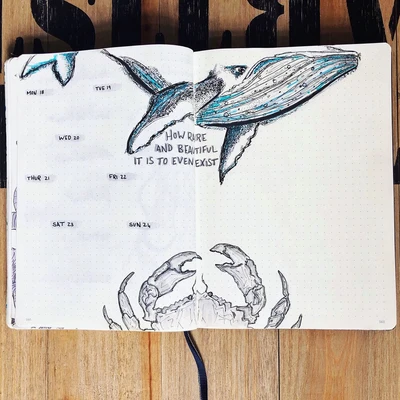 MON 18
TUE 19
WED 20
THUR 21
FRI 22
SAT 23
SUN 24
HOW RARE
AND BEAUTIFUL
IT IS TO EVEN EXIST